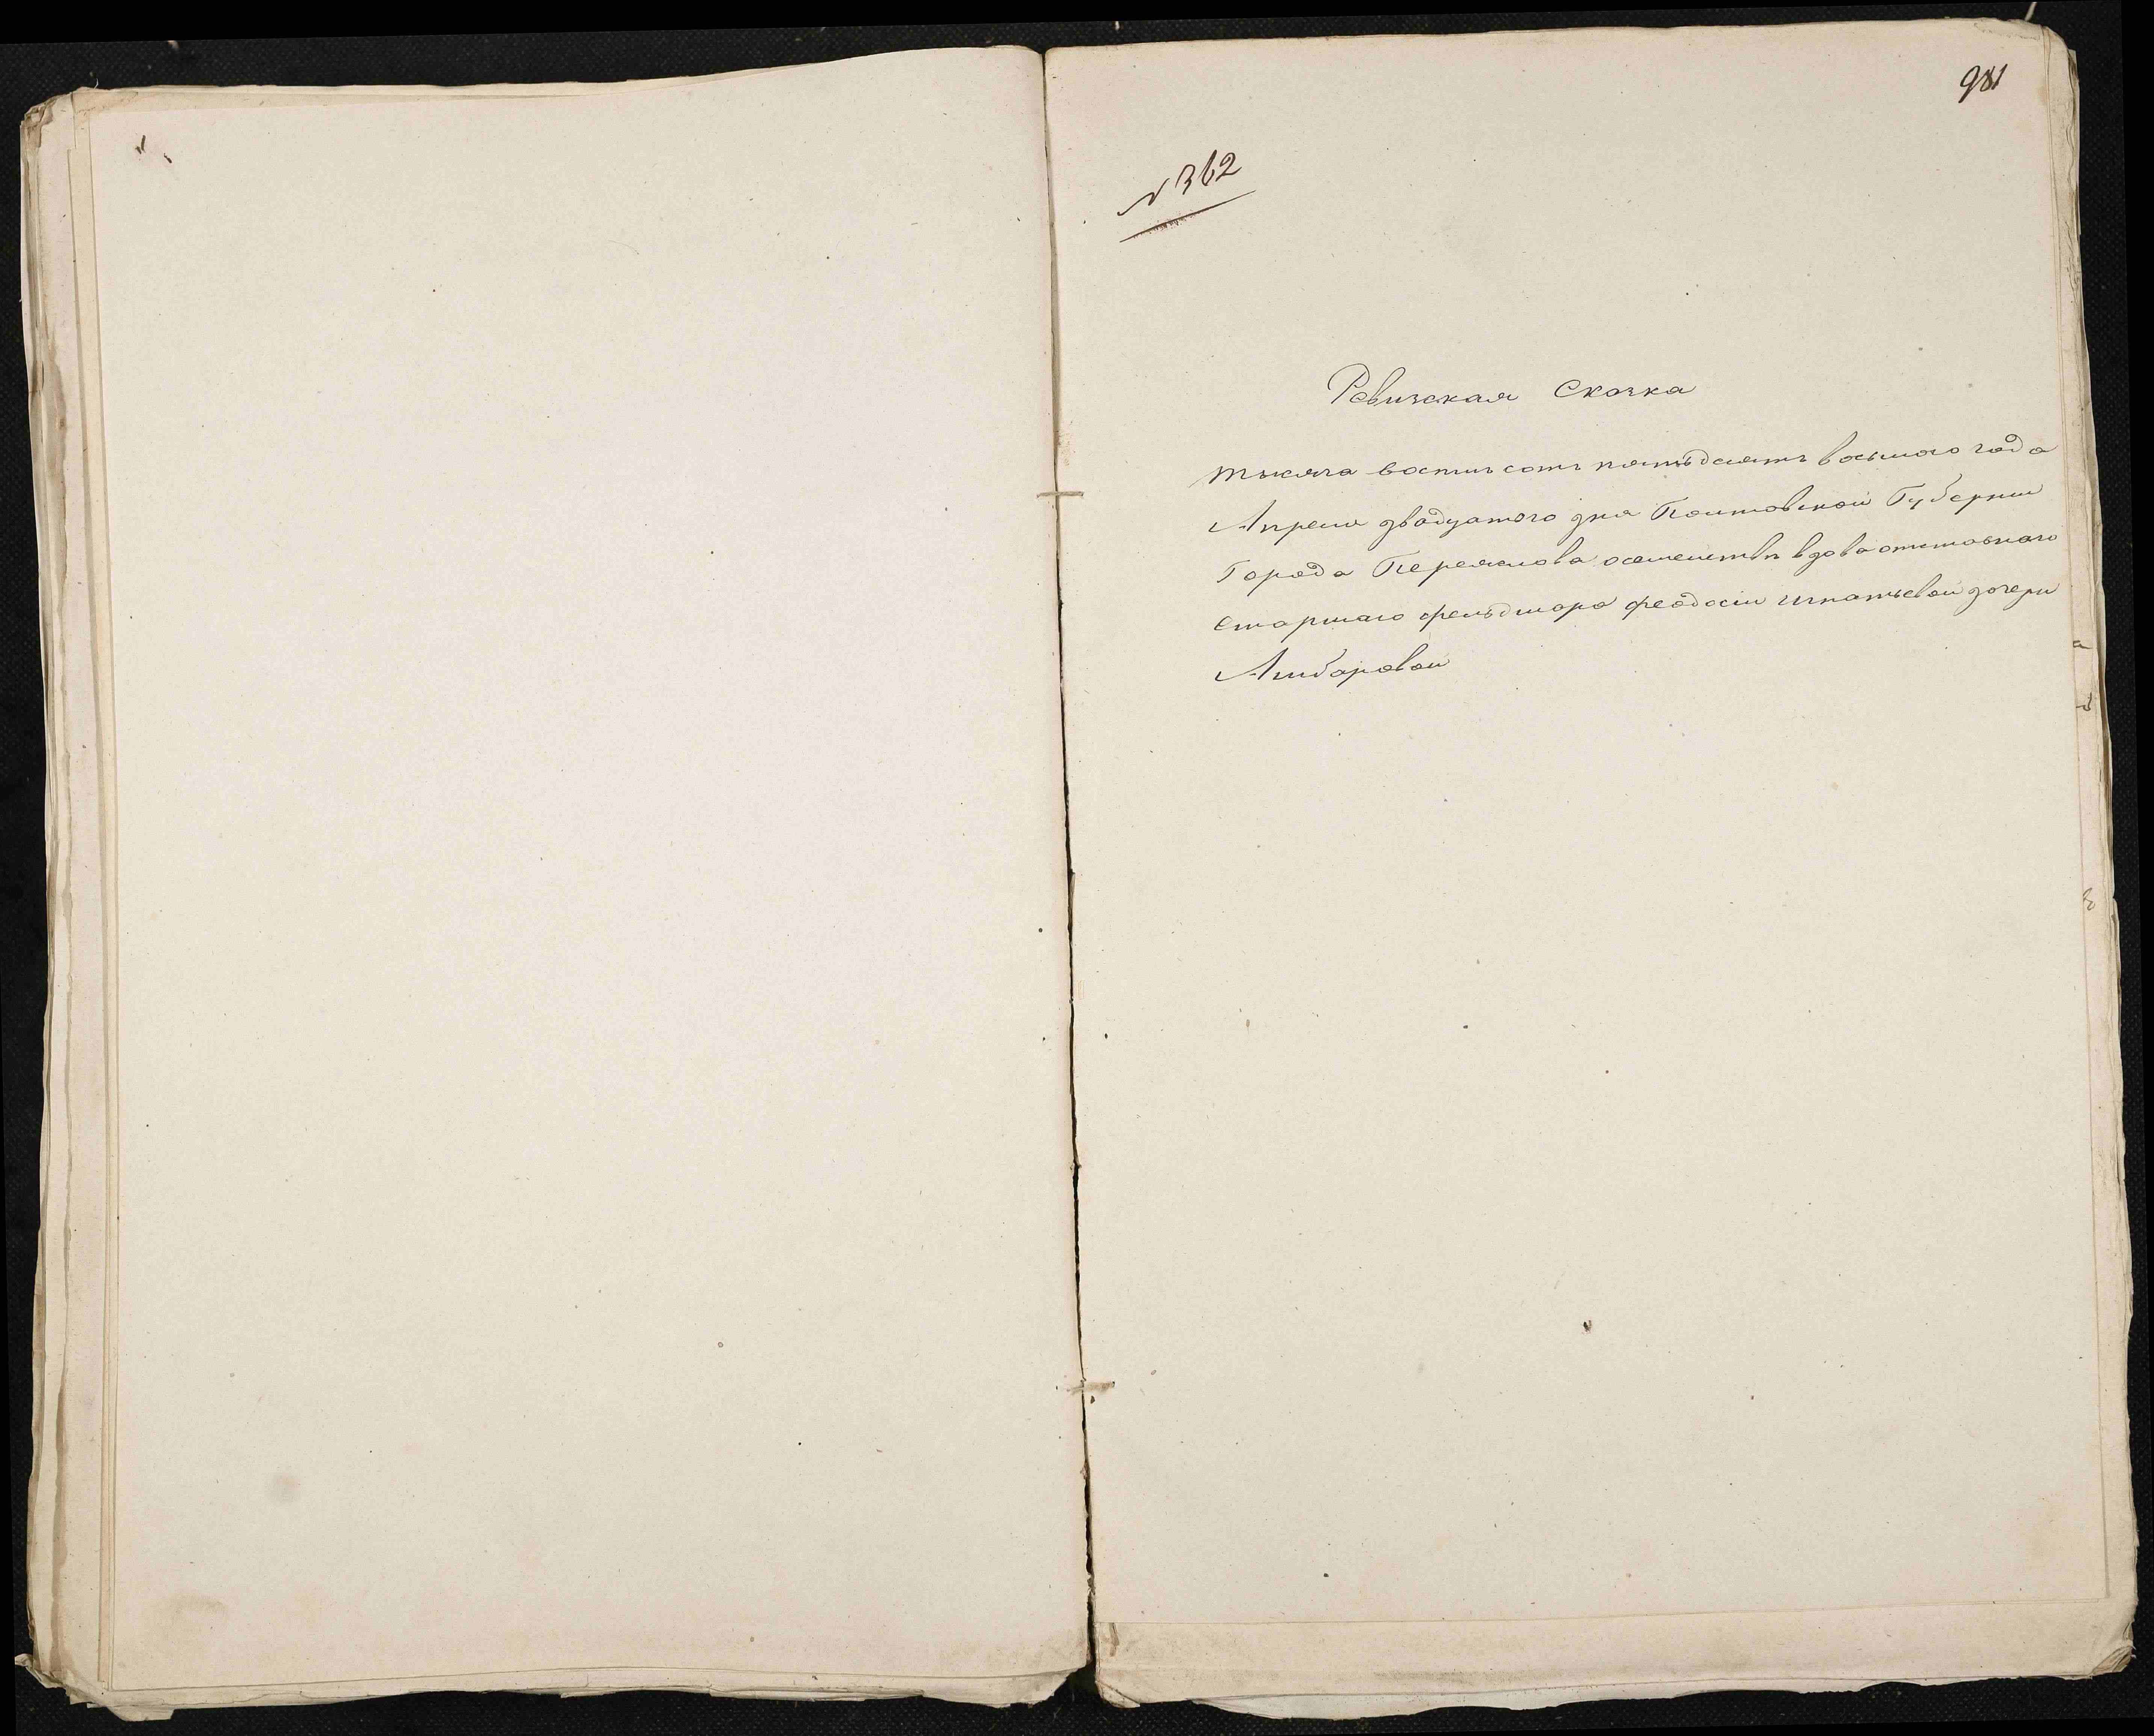 981
№ 362
Ревизская Сказка
тысяча восемь сотъ пятьдесятъ восьмого года
Апреля двадцатого дня Полтовской Губернии
Города Переяслова осемействѣ вдова отставнаго
старшаго фельдшера феодосіи игнатьевой дочери
Амбаровой